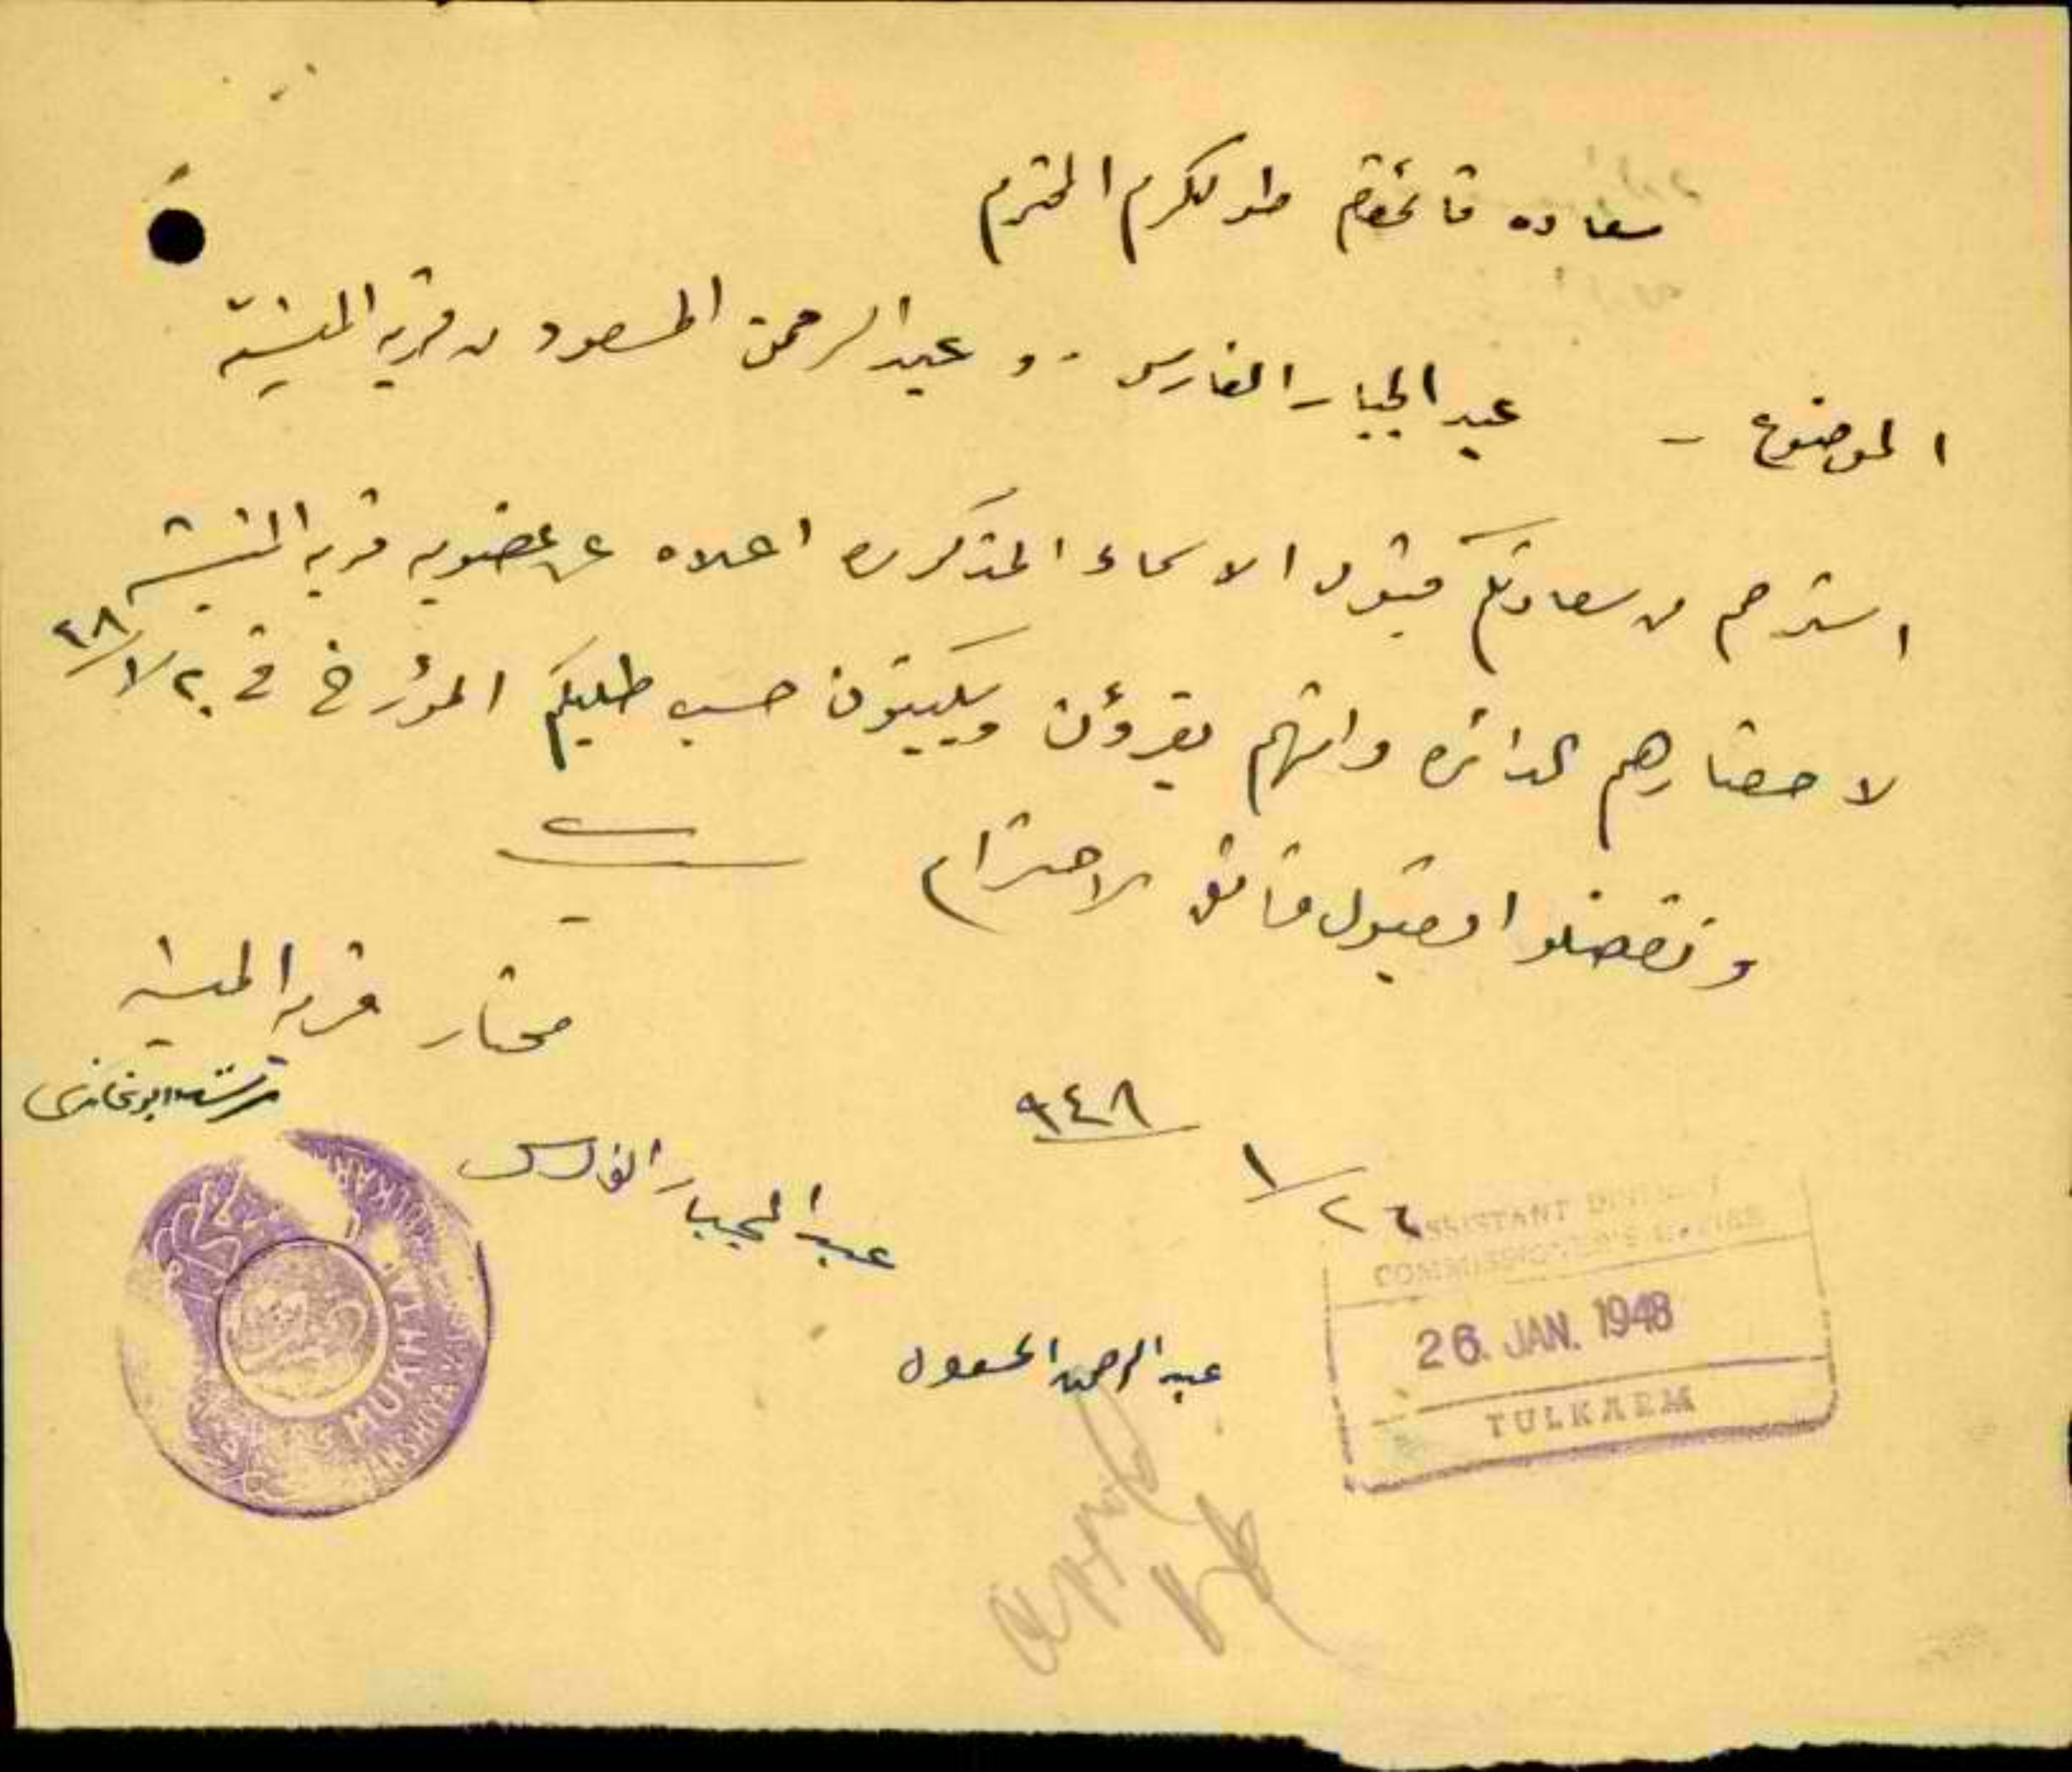 سعاده قائمقام طولكرم المحترم
الموضوع - عبد الجبار الفارس - و عبد الرحمن المسعود من قريه المنشية
استرحم من سعادتكم قبول الاسماء المذكوره اعلاه عن عضويه قريه المنشية
لاحضارهم الدائره وانهم يقرؤن ويكتبون حسب طلبكم المؤرخ في ٢٠/١/٤٨
وتفضلوا بقبول فائق الاحترام
مختار قريه المنشية
ابو
٢٦/١ ٩٤٨
عبد الجبار الفارس
عبد الرحمن المسعود
ASSISTANT DISTRICT
COMMISSIONER'S OFFICE
26. JAN. 1948
TULKAREM
MUKHTAR